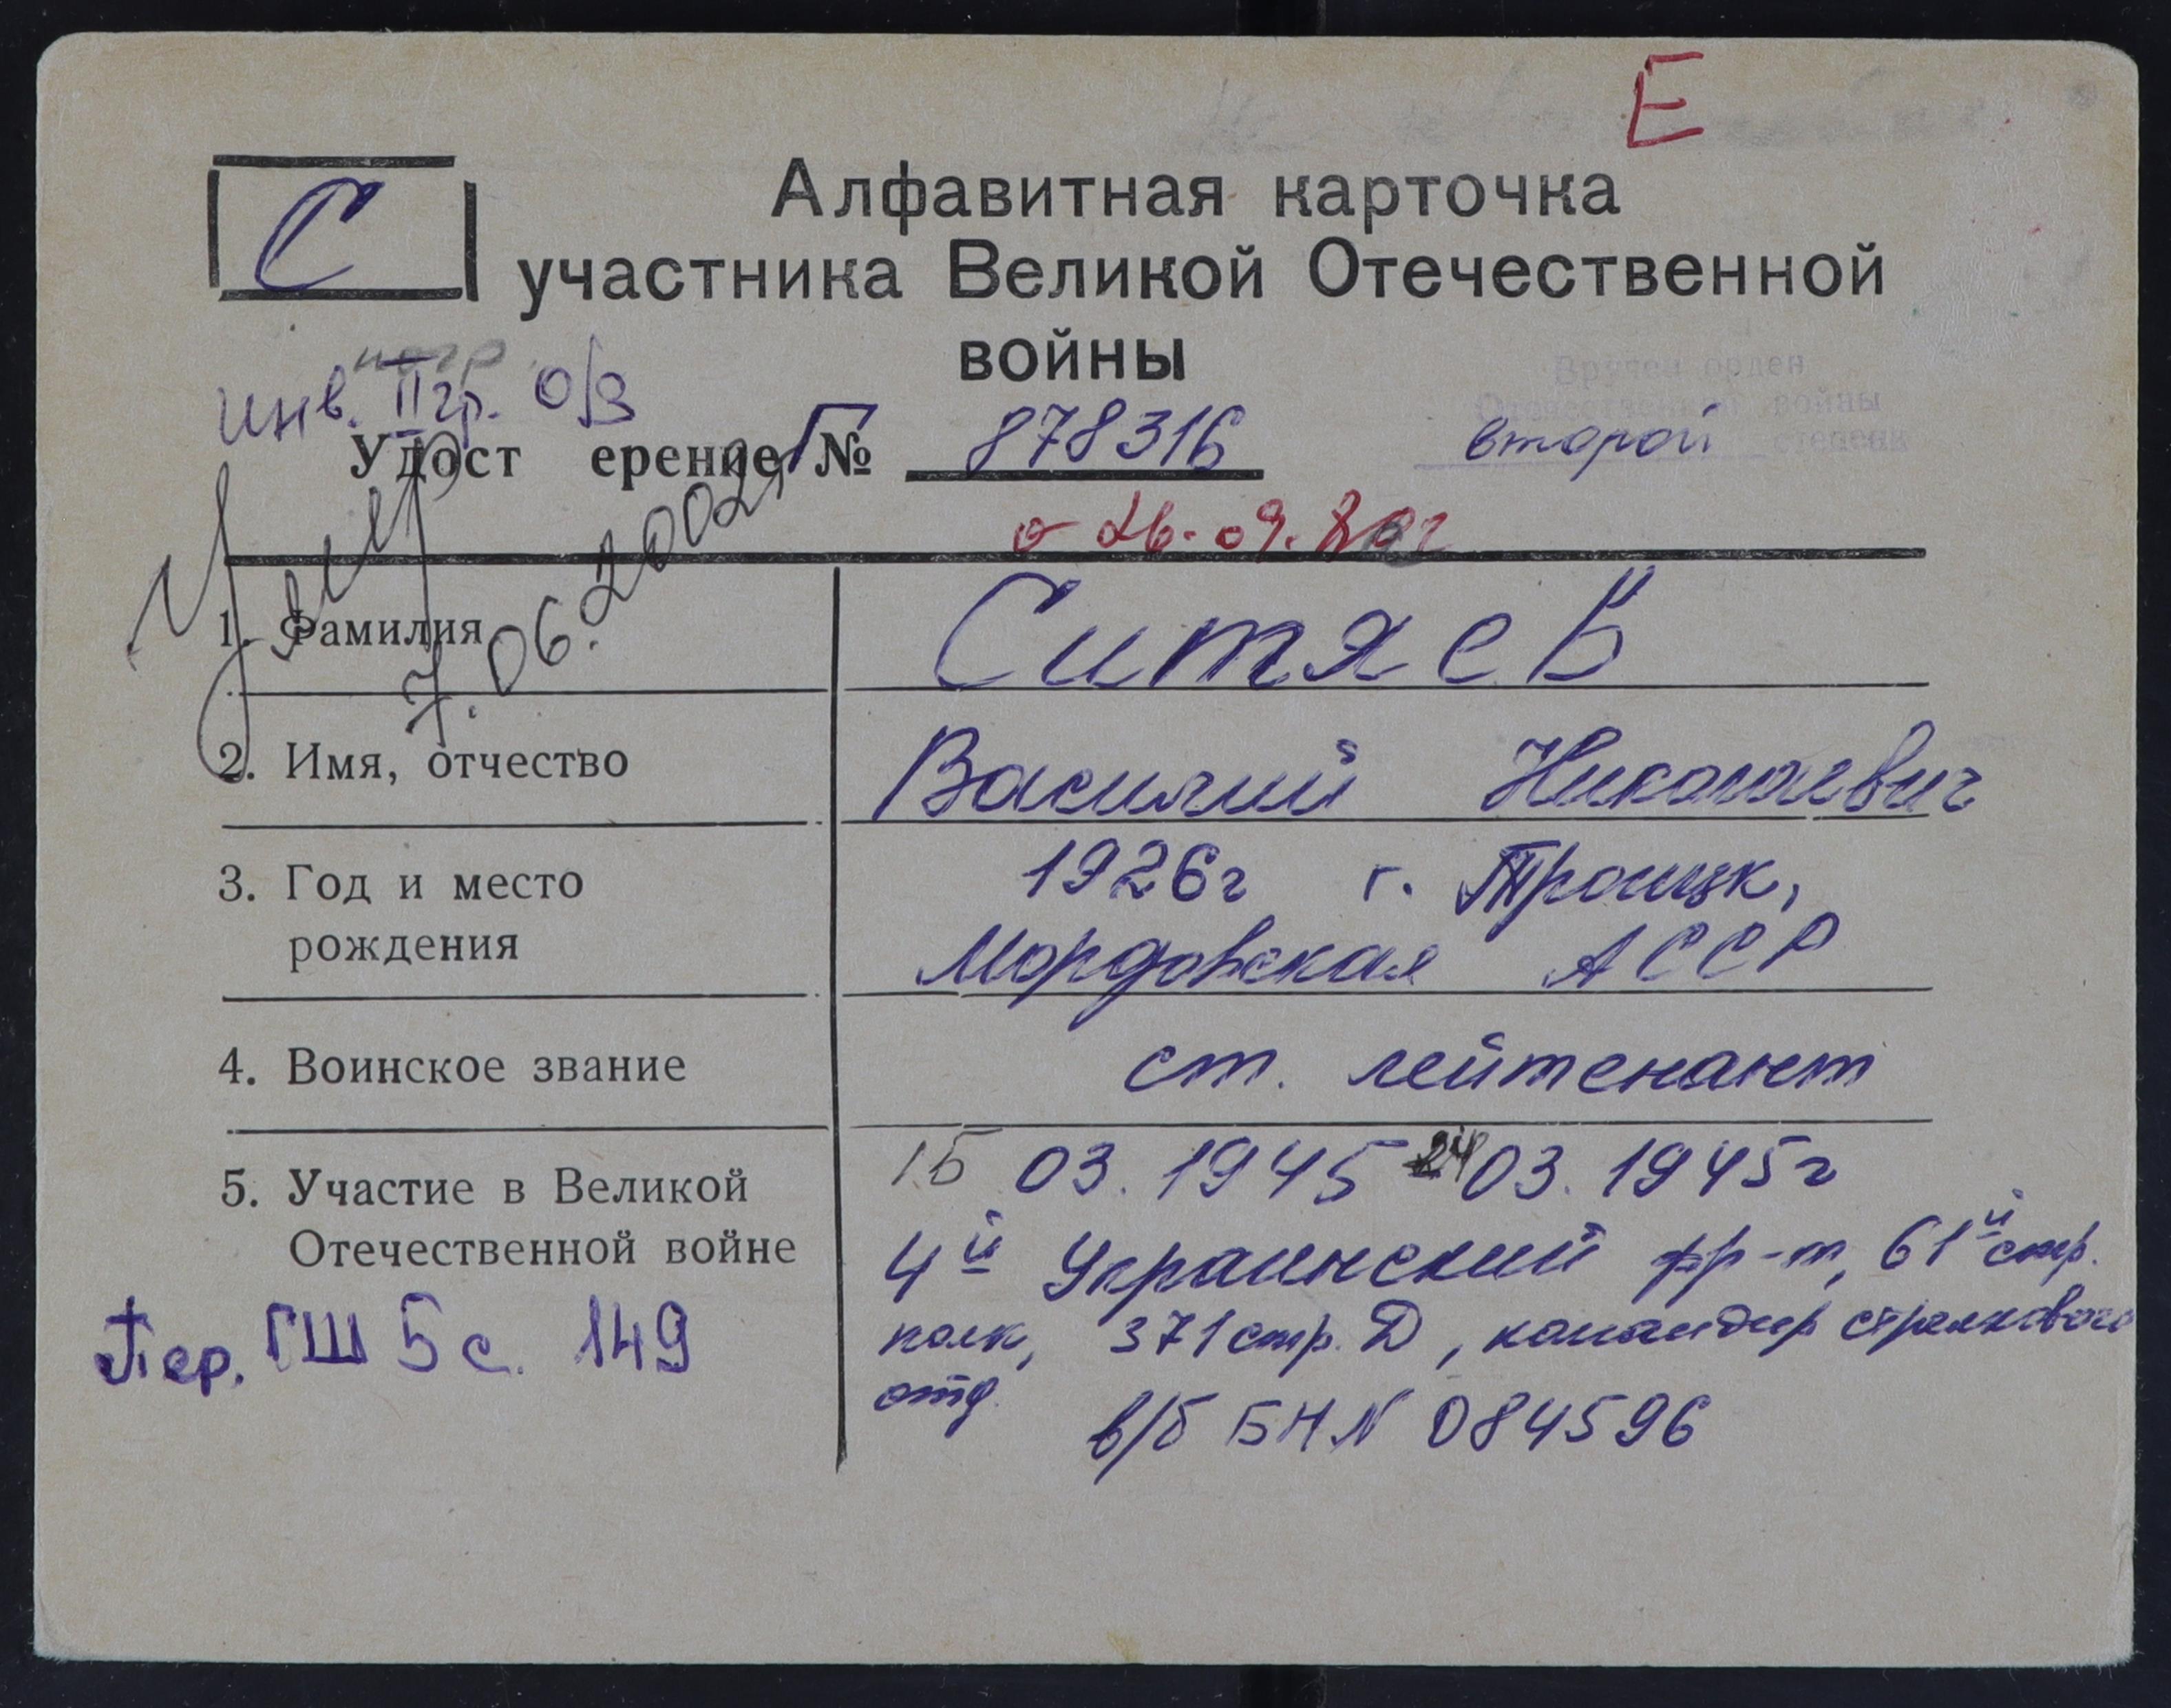 Е
С
Алфавитная карточка
участника Великой Отечественной
войны
Вручен орден
Отечественной войны
второй степени
инв. II гр. О/З
Удост ерение Г № 878316
26.09.80г
Умер
7.06.2002г
1. Фамилия Ситяев
2. Имя, отчество Василий Николаевич
3. Год и место 1926г г. Троицк,
рождения Мордовская АССР
4. Воинское звание ст. лейтенант
5. Участие в Великой 15 03. 1945 24 03. 1945г
Отечественной войне 4й Украинский фр-т, 61й стр.
полк, 371 стр. Д, командир стрелкового
отд.
Пер. ГШ 5 с. 149
в/б БН N 084596